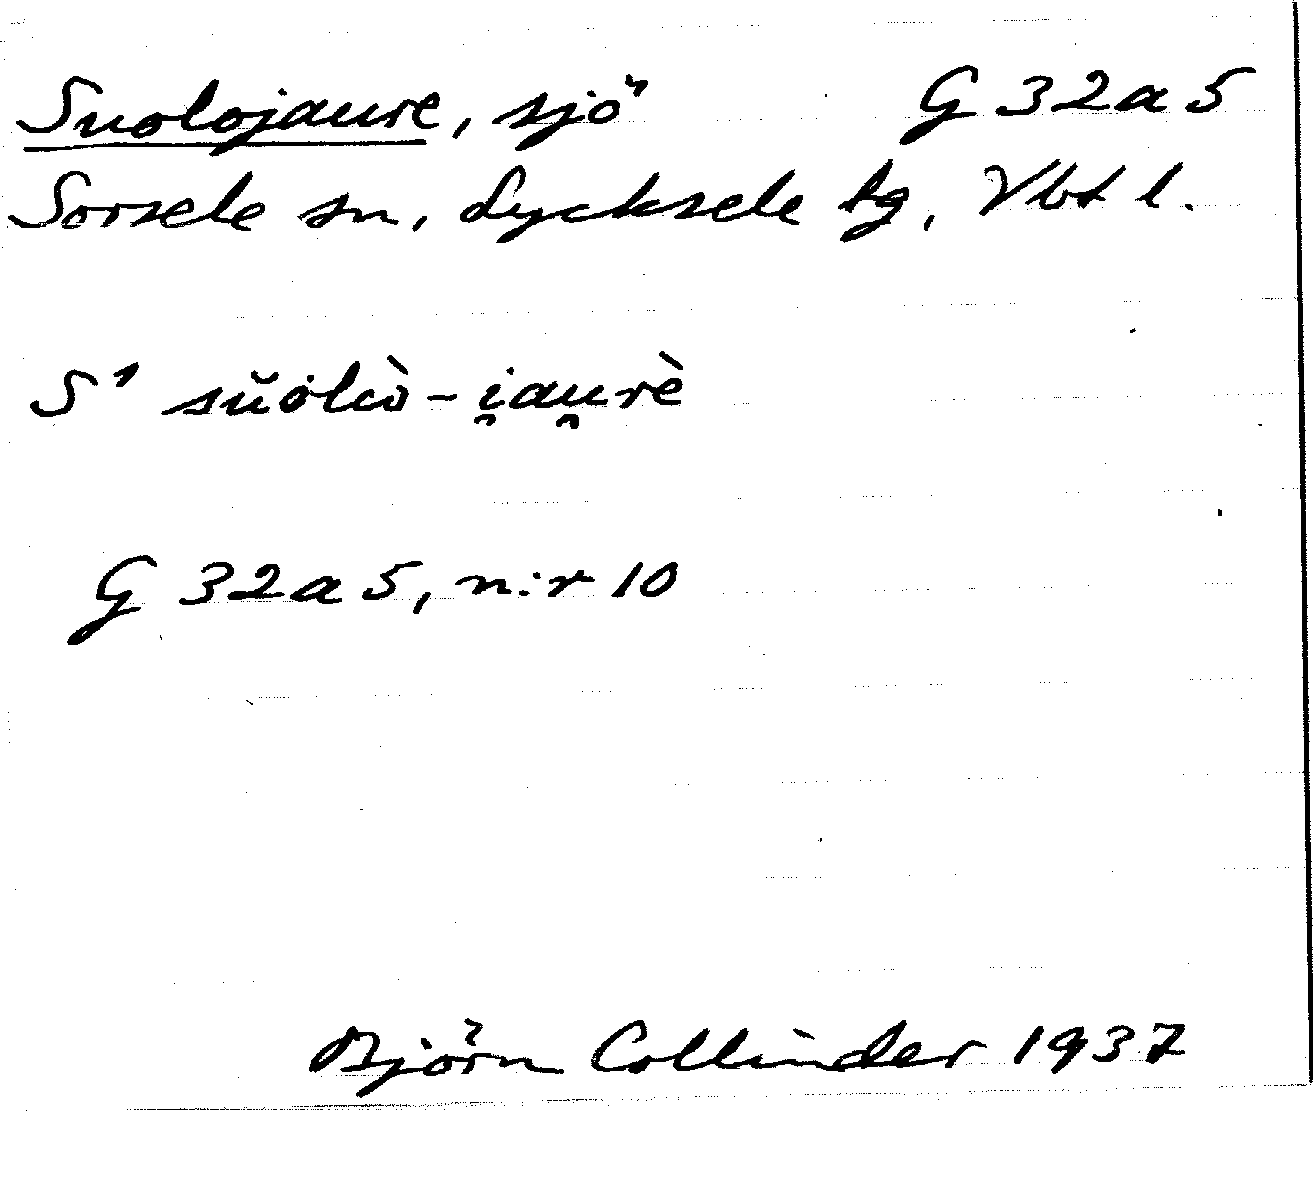 Suolojaure, sjö G 32a5
Sorsele sn, Lycksele lg, Vbt l.
S¹ sŭȯlɷ̀-i̯au̯rè
G 32a5, n:r 10
Björn Collinder 1937